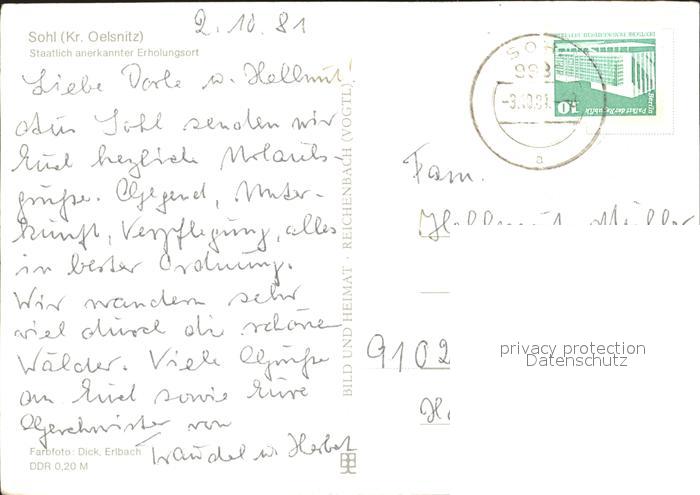 2.10.81
Sohl (Kr. Oelsnitz)
Staatlich anerkannter Erholungsort
Liebe Dorle u. Hellmut!
Aus Sohl senden wir
Euch herzliche Urlaubs-
grüße. Gegend, Unter-
kunft, Verpflegung, alles
in bester Ordnung.
Wir wandern sehr
viel durch die schöne
Wälder. Viele Grüße
an Euch sowie Eure
Geschwister von
Traudel u. Herbert
Farbfoto: Dick, Erlbach
DDR 0,20 M
BILD UND HEIMAT · REICHENBACH (VOGTL)
SOHL
993
-3.10.81
a
10
Berlin
Palast der Republik
DEUTSCHE DEMOKRATISCHE REPUBLIK
Fam.
Hellmut Müller
9102
privacy protection
Datenschutz